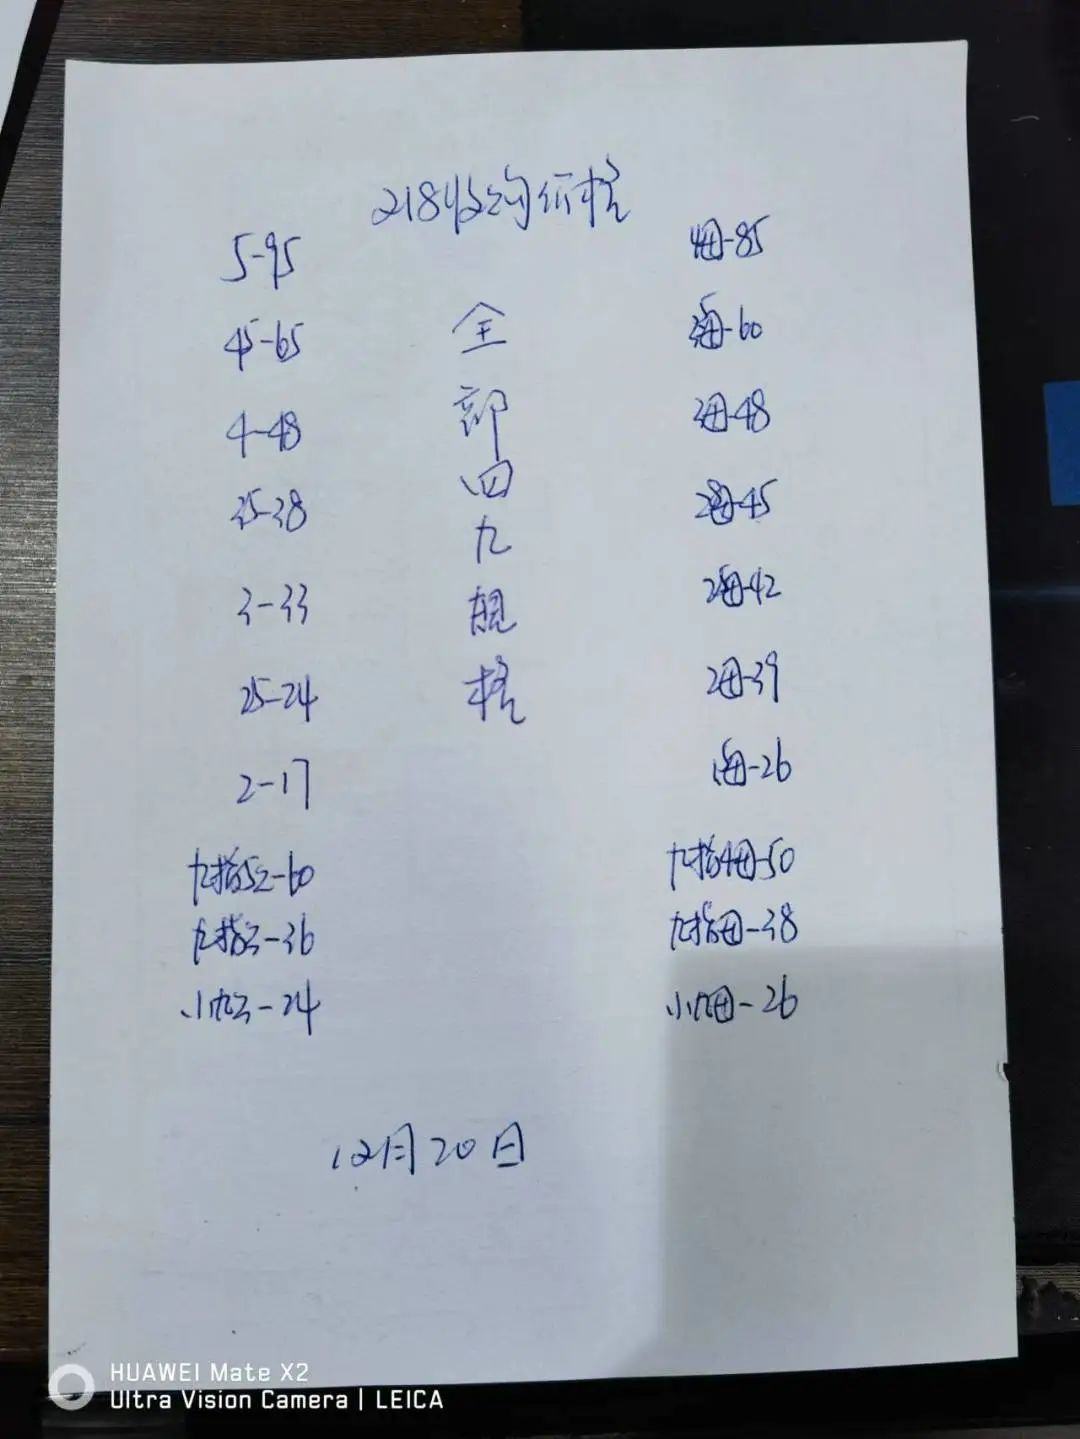 218收购价格
5-95
45-65
4-48
35-38
3-33
25-24
2-17
九指52-60
九指3-36
小九3-24
全
部
四
九
规
格
4母-85
3母-60
3母-48
28母-45
25母-42
2母-39
1母-26
九指4母-50
九指母-38
小九母-26
12月20日
HUAWEI Mate X2
Ultra Vision Camera | LEICA